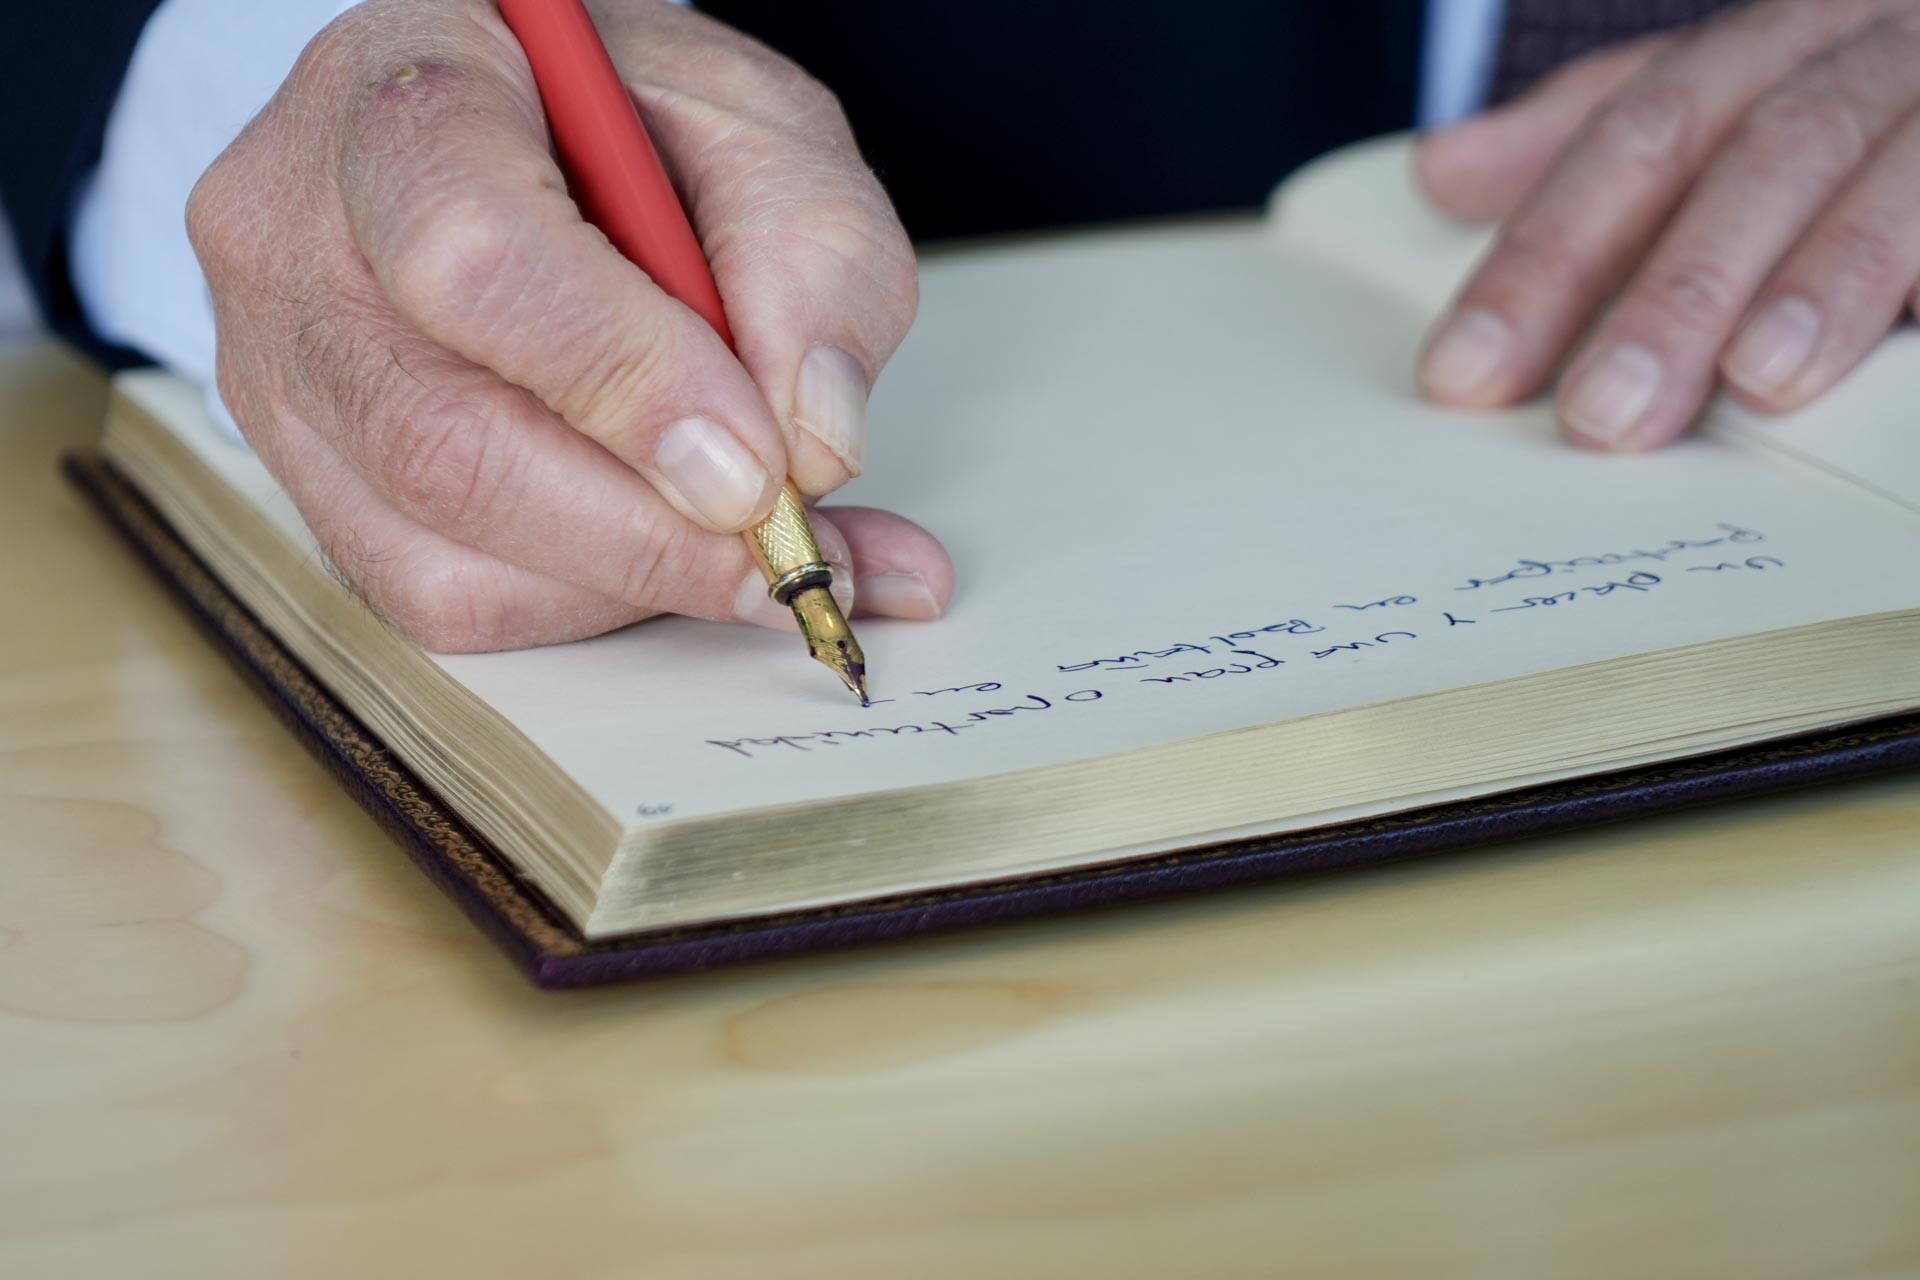 Un placer y una gran oportunidad
participar en Boltaña en